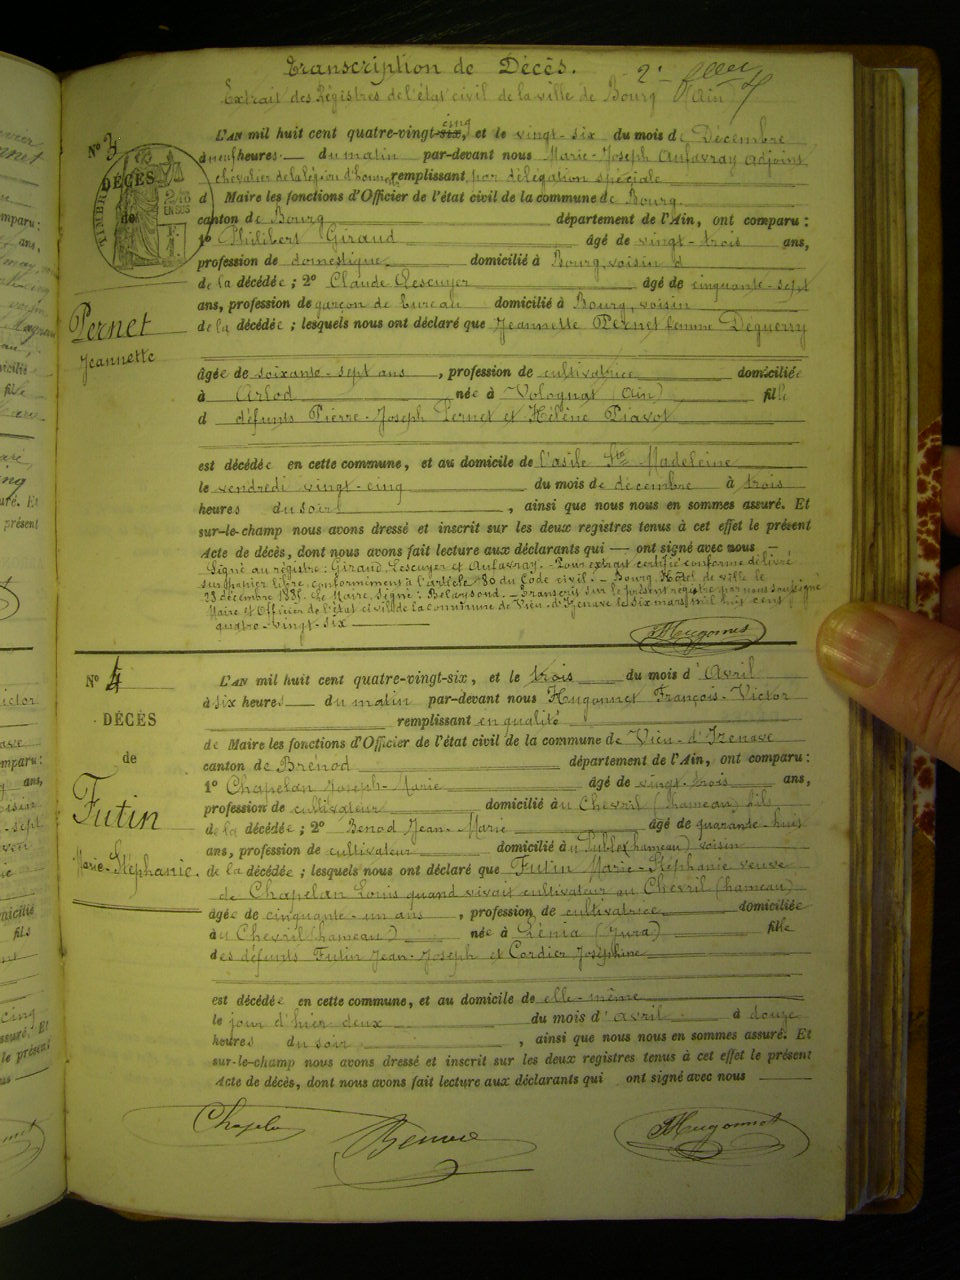 Transcription de Décès.
2e
Extrait des Régistres de l'état civil de la ville de Bourg Ain
N° 3
TIMBRE
DÉCÈS
de
2/10 EN SUS
L'AN mil huit cent quatre-vingt-six, cinq et le vingt-six du mois de Décembre
à neuf heures du matin par-devant nous Marie-Joseph Aufavray adjoint
chevalier de la légion d'honneur remplissant par délégation spéciale
d Maire les fonctions d'Officier de l'état civil de la commune de Bourg
canton de Bourg département de l'Ain, ont comparu :
1° Philibert Giraud âgé de vingt-trois ans,
profession de domestique domicilié à Bourg, voisin d
de la décédée ; 2° Claude Lescuyer âgé de cinquante-sept
ans, profession de garçon de bureau domicilié à Bourg, voisin
de la décédée ; lesquels nous ont déclaré que Jeannette Pernet femme Déguerry
Pernet
Jeannette
âgée de soixante-sept ans, profession de cultivatrice domiciliée
à Arlod née à Volognat (Ain) fille
d défunts Pierre-Joseph Pernet et Hélène Piavot
est décédée en cette commune, et au domicile de l'asile Ste Madeleine
le vendredi vingt-cinq du mois de décembre à trois
heures du soir, ainsi que nous nous en sommes assuré. Et
sur-le-champ nous avons dressé et inscrit sur les deux registres tenus à cet effet le présent
Acte de décès, dont nous avons fait lecture aux déclarants qui — ont signé avec nous —
Signé au régistre : Giraud, Lescuyer et Aufavray. - Pour extrait certifié conforme délivré
sur papier libre, conformément à l'article 80 du Code civil. - Bourg, Hôtel de ville le
28 décembre 1885. Le Maire, signé : - Transcrit sur le présent registre par nous soussigné
Maire et Officier de l'état civil de la commune de Vieu-d'Izenave le six mars mil huit cent
quatre-vingt-six
Hugonnet
N° 4
DÉCÈS
de
Futin
Marie-Stéphanie.
L'AN mil huit cent quatre-vingt-six, et le trois du mois d'Avril
à six heures du matin par-devant nous Hugonnet François-Victor
remplissant en qualité
de Maire les fonctions d'Officier de l'état civil de la commune de Vieu-d'Izenave
canton de Brénod département de l'Ain, ont comparu :
1° Chapelan Joseph-Marie âgé de vingt-trois ans,
profession de cultivateur domicilié au Chevril (hameau) fils
de la décédée ; 2° Benod Jean-Marie âgé de quarante-huit
ans, profession de cultivateur domicilié au (hameau) voisin
de la décédée ; lesquels nous ont déclaré que Futin Marie-Stéphanie veuve
de Chapelan Louis quand vivait cultivateur au Chevril (hameau)
âgée de cinquante-un ans, profession de cultivatrice domiciliée
au Chevril (hameau) née à (Jura) fille
des défunts Futin Jean-Joseph et Cordier Joséphine
est décédée en cette commune, et au domicile de elle-même
le jour d'hier deux du mois d'avril à douze
heures du soir, ainsi que nous nous en sommes assuré. Et
sur-le-champ nous avons dressé et inscrit sur les deux registres tenus à cet effet le présent
Acte de décès, dont nous avons fait lecture aux déclarants qui ont signé avec nous
Chapelan Hugonnet